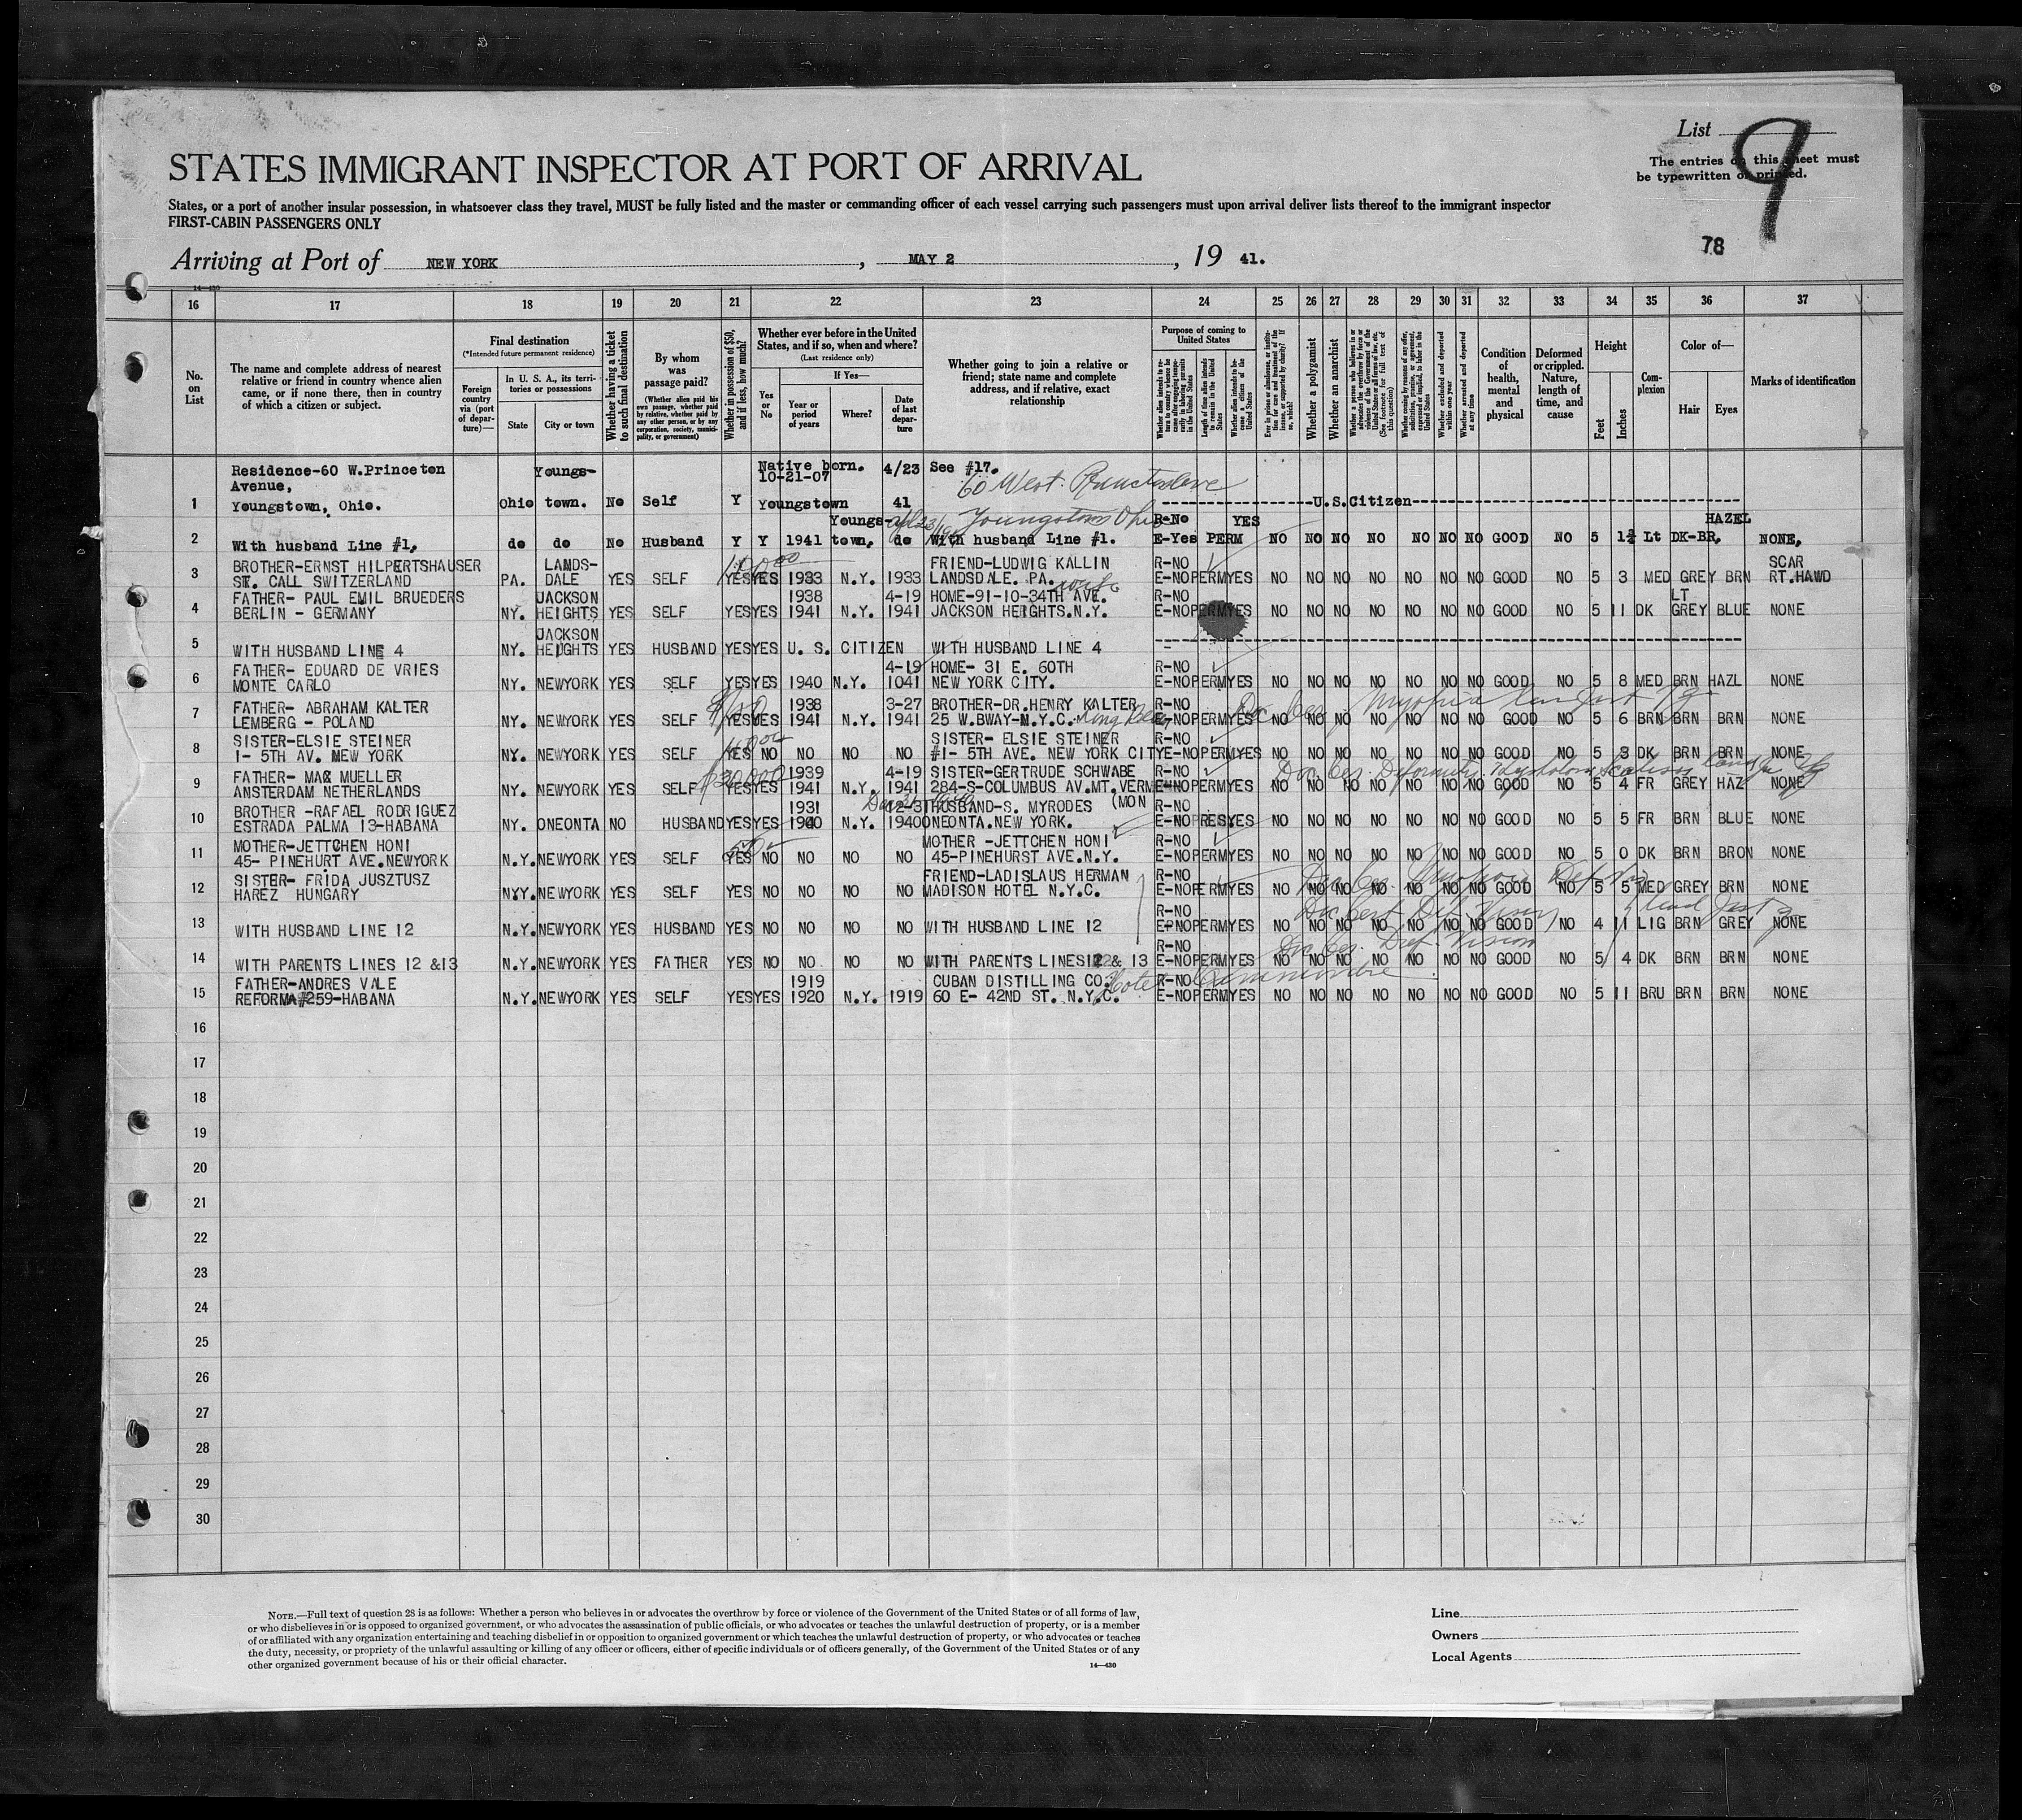 List 9
STATES IMMIGRANT INSPECTOR AT PORT OF ARRIVAL
The entries on this sheet must
be typewritten or printed.
States, or a port of another insular possession, in whatsoever class they travel, MUST be fully listed and the master or commanding officer of each vessel carrying such passengers must upon arrival deliver lists thereof to the immigrant inspector
FIRST-CABIN PASSENGERS ONLY
78
Arriving at Port of NEW YORK, MAY 2, 19 41.
14—430
16 17 18 19 20 21 22 23 24 25 26 27 28 29 30 31 32 33 34 35 36 37
No. on List
The name and complete address of nearest relative or friend in country whence alien came, or if none there, then in country of which a citizen or subject.
Final destination
(*Intended future permanent residence)
Foreign country via (port of departure)—
In U. S. A., its territories or possessions
State
City or town
Whether having a ticket to such final destination
By whom was passage paid?
(Whether alien paid his own passage, whether paid by relative, whether paid by any other person, or by any corporation, society, municipality, or government)
Whether in possession of $50, and if less, how much?
Whether ever before in the United States, and if so, when and where?
(Last residence only)
Yes or No
If Yes—
Year or period of years
Where?
Date of last departure
Whether going to join a relative or friend; state name and complete address, and if relative, exact relationship
Purpose of coming to United States
Whether a polygamist
Whether an anarchist
Condition of health, mental and physical
Deformed or crippled. Nature, length of time, and cause
Height
Feet
Inches
Complexion
Color of—
Hair
Eyes
Marks of identification
Residence-60 W.Princeton Youngs- Native born. 4/23 See #17.
Avenue, 10-21-07 60 West
1 Youngstown, Ohio. Ohio town. No Self Y Youngstown 41 U.S.Citizen
Youngs- Youngstown Ohio R-No YES HAZEL
2 With husband Line #1, do do No Husband Y Y 1941 town, do With husband Line #1. E-Yes PERM NO NO NO NO NO NO NO GOOD NO 5 1½ Lt DK-BR, NONE,
BROTHER-ERNST HILPERTSHAUSER LANDS- FRIEND-LUDWIG KALLIN R-NO SCAR
3 ST. CALL SWITZERLAND PA. DALE YES SELF YES YES 1933 N.Y. 1933 LANDSDALE. PA. E-NO PERM YES NO NO NO NO NO NO NO GOOD NO 5 3 MED GREY BRN RT.HAWD
FATHER- PAUL EMIL BRUEDERS JACKSON 1938 4-19 HOME-91-10-34TH AVE. wife R-NO LT
4 BERLIN - GERMANY NY. HEIGHTS YES SELF YES YES 1941 N.Y. 1941 JACKSON HEIGHTS.N.Y. E-NO PERM YES NO NO NO NO NO NO NO GOOD NO 5 11 DK GREY BLUE NONE
JACKSON
5 WITH HUSBAND LINE 4 NY. HEIGHTS YES HUSBAND YES YES U. S. CITIZEN WITH HUSBAND LINE 4
FATHER- EDUARD DE VRIES 4-19 HOME- 31 E. 60TH R-NO
6 MONTE CARLO NY. NEWYORK YES SELF YES YES 1940 N.Y. 1041 NEW YORK CITY. E-NO PERM YES NO NO NO NO NO NO NO GOOD NO 5 8 MED BRN HAZL NONE
FATHER- ABRAHAM KALTER 1938 3-27 BROTHER-DR.HENRY KALTER R-NO
7 LEMBERG - POLAND NY. NEWYORK YES SELF YES YES 1941 N.Y. 1941 25 W.BWAY-N.Y.C. E-NO PERM YES NO NO NO NO NO NO NO GOOD NO 5 6 BRN BRN BRN NONE
SISTER-ELSIE STEINER SISTER- ELSIE STEINER R-NO
8 1- 5TH AV. MEW YORK NY. NEWYORK YES SELF YES NO NO NO NO #1- 5TH AVE. NEW YORK CITY E-NO PERM YES NO NO NO NO NO NO NO GOOD NO 5 3 DK BRN BRN NONE
FATHER- MAX MUELLER 1939 4-19 SISTER-GERTRUDE SCHWABE R-NO
9 AMSTERDAM NETHERLANDS NY. NEWYORK YES SELF YES YES 1941 N.Y. 1941 284-S-COLUMBUS AV.MT.VERM E-NO PERM YES NO NO NO NO NO NO NO GOOD NO 5 4 FR GREY HAZ NONE
BROTHER -RAFAEL RODRIGUEZ 1931 12-31 HUSBAND-S. MYRODES (MON R-NO
10 ESTRADA PALMA 13-HABANA NY. ONEONTA NO HUSBAND YES YES 1940 N.Y. 1940 ONEONTA.NEW YORK. E-NO PRES YES NO NO NO NO NO NO NO GOOD NO 5 5 FR BRN BLUE NONE
MOTHER-JETTCHEN HONI MOTHER -JETTCHEN HONI R-NO
11 45- PINEHURT AVE.NEWYORK N.Y. NEWYORK YES SELF YES NO NO NO NO 45-PINEHURST AVE.N.Y. E-NO PERM YES NO NO NO NO NO NO NO GOOD NO 5 0 DK BRN BRON NONE
SISTER- FRIDA JUSZTUSZ FRIEND-LADISLAUS HERMAN R-NO
12 HAREZ HUNGARY N.Y. NEWYORK YES SELF YES NO NO NO NO MADISON HOTEL N.Y.C. E-NO PERM YES NO NO NO NO NO NO NO GOOD NO 5 5 MED GREY BRN NONE
R-NO
13 WITH HUSBAND LINE 12 N.Y. NEWYORK YES HUSBAND YES NO NO NO NO WITH HUSBAND LINE 12 E-NO PERM YES NO NO NO NO NO NO NO GOOD NO 4 11 LIG BRN GREY NONE
R-NO
14 WITH PARENTS LINES 12 &13 N.Y. NEWYORK YES FATHER YES NO NO NO NO WITH PARENTS LINES 12 & 13 E-NO PERM YES NO NO NO NO NO NO NO GOOD NO 5 4 DK BRN BRN NONE
FATHER-ANDRES VALE 1919 CUBAN DISTILLING CO. Hotel R-NO
15 REFORMA#259-HABANA N.Y. NEWYORK YES SELF YES YES 1920 N.Y. 1919 60 E- 42ND ST. N.Y.C. E-NO PERM YES NO NO NO NO NO NO NO GOOD NO 5 11 BRU BRN BRN NONE
16
17
18
19
20
21
22
23
24
25
26
27
28
29
30
NOTE.—Full text of question 28 is as follows: Whether a person who believes in or advocates the overthrow by force or violence of the Government of the United States or of all forms of law,
or who disbelieves in or is opposed to organized government, or who advocates the assassination of public officials, or who advocates or teaches the unlawful destruction of property, or is a member
of or affiliated with any organization entertaining and teaching disbelief in or opposition to organized government or which teaches the unlawful destruction of property, or who advocates or teaches
the duty, necessity, or propriety of the unlawful assaulting or killing of any officer or officers, either of specific individuals or of officers generally, of the Government of the United States or of any
other organized government because of his or their official character.
14—430
Line
Owners
Local Agents